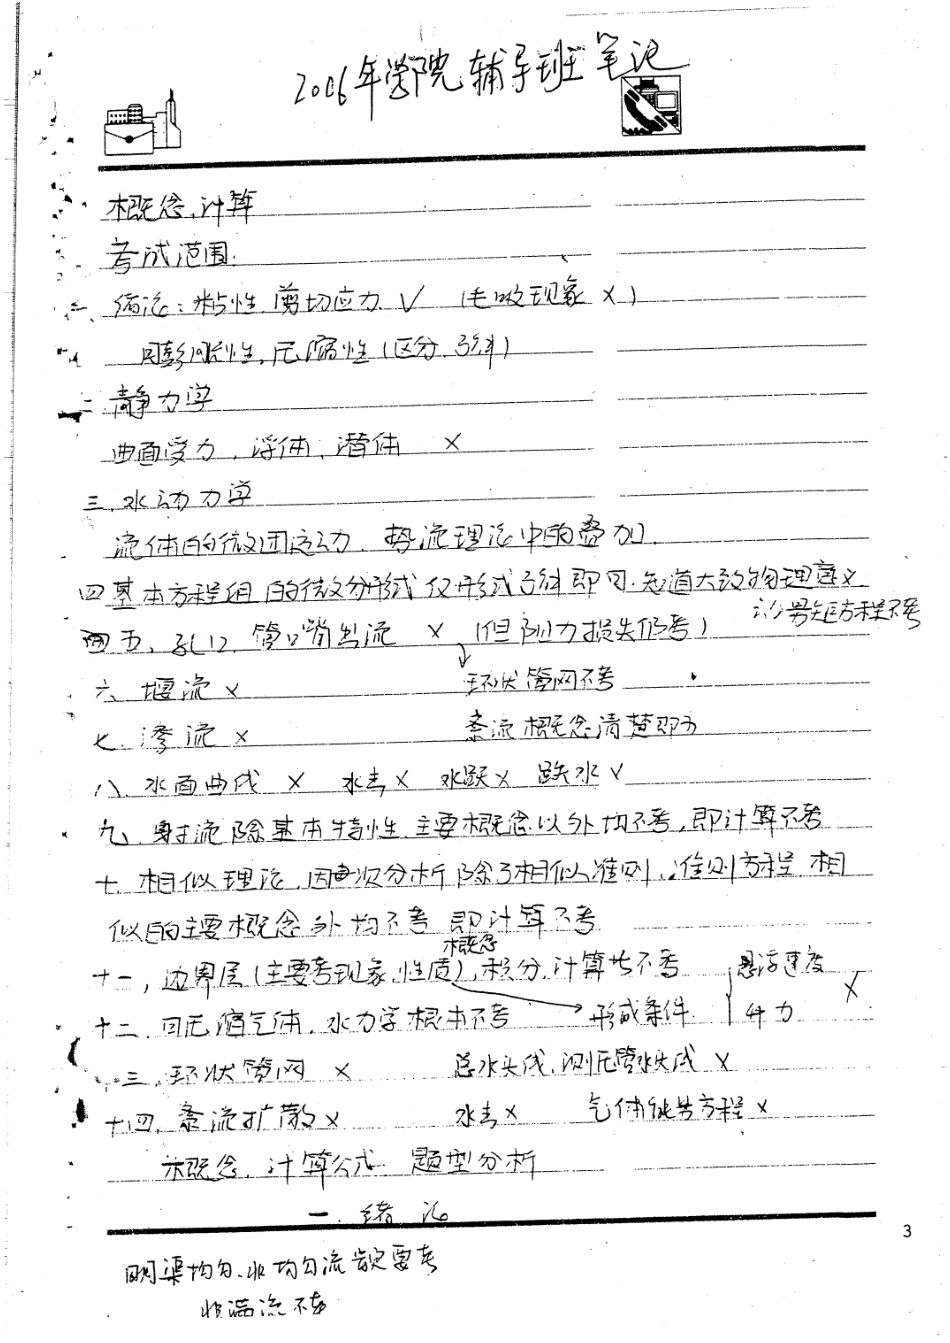 2006年学院辅导班笔记
概念、计算
考试范围:
一、绪论:粘性、剪切应力 √ (毛吸现象 X)
膨胀性、压缩性(区分、了解)
二、静力学
曲面受力、浮体、潜体 X
三、水动力学
流体的微团运动、势流理论中的叠加.
四 基本方程组的微分形式 仅形式了解即可.知道大致物理意义
动量矩方程不考
五、孔口、管嘴出流 X (但阻力损失仍考)
六、堰流 X 环状管网不考
七、渗流 X 紊流概念清楚即可
八、水面曲线 X 水击 X 水跃 X 跌水 √
九、射流除基本特性、主要概念以外均不考,即计算不考
十、相似理论、因次分析除了相似准则、准则方程、相
似的主要概念外均不考 即计算不考
概念
十一、边界层(主要考现象、性质),积分、计算皆不考 悬浮速度 X
十二、可压缩气体、水力学根本不考 形成条件 升力
十三、环状管网 X 总水头线、测压管水头线 X
十四、紊流扩散 X 水击 X 气体能量方程 X
概念、计算公式、题型分析
一、绪论
3
明渠均匀、非均匀流肯定要考
非满流不考